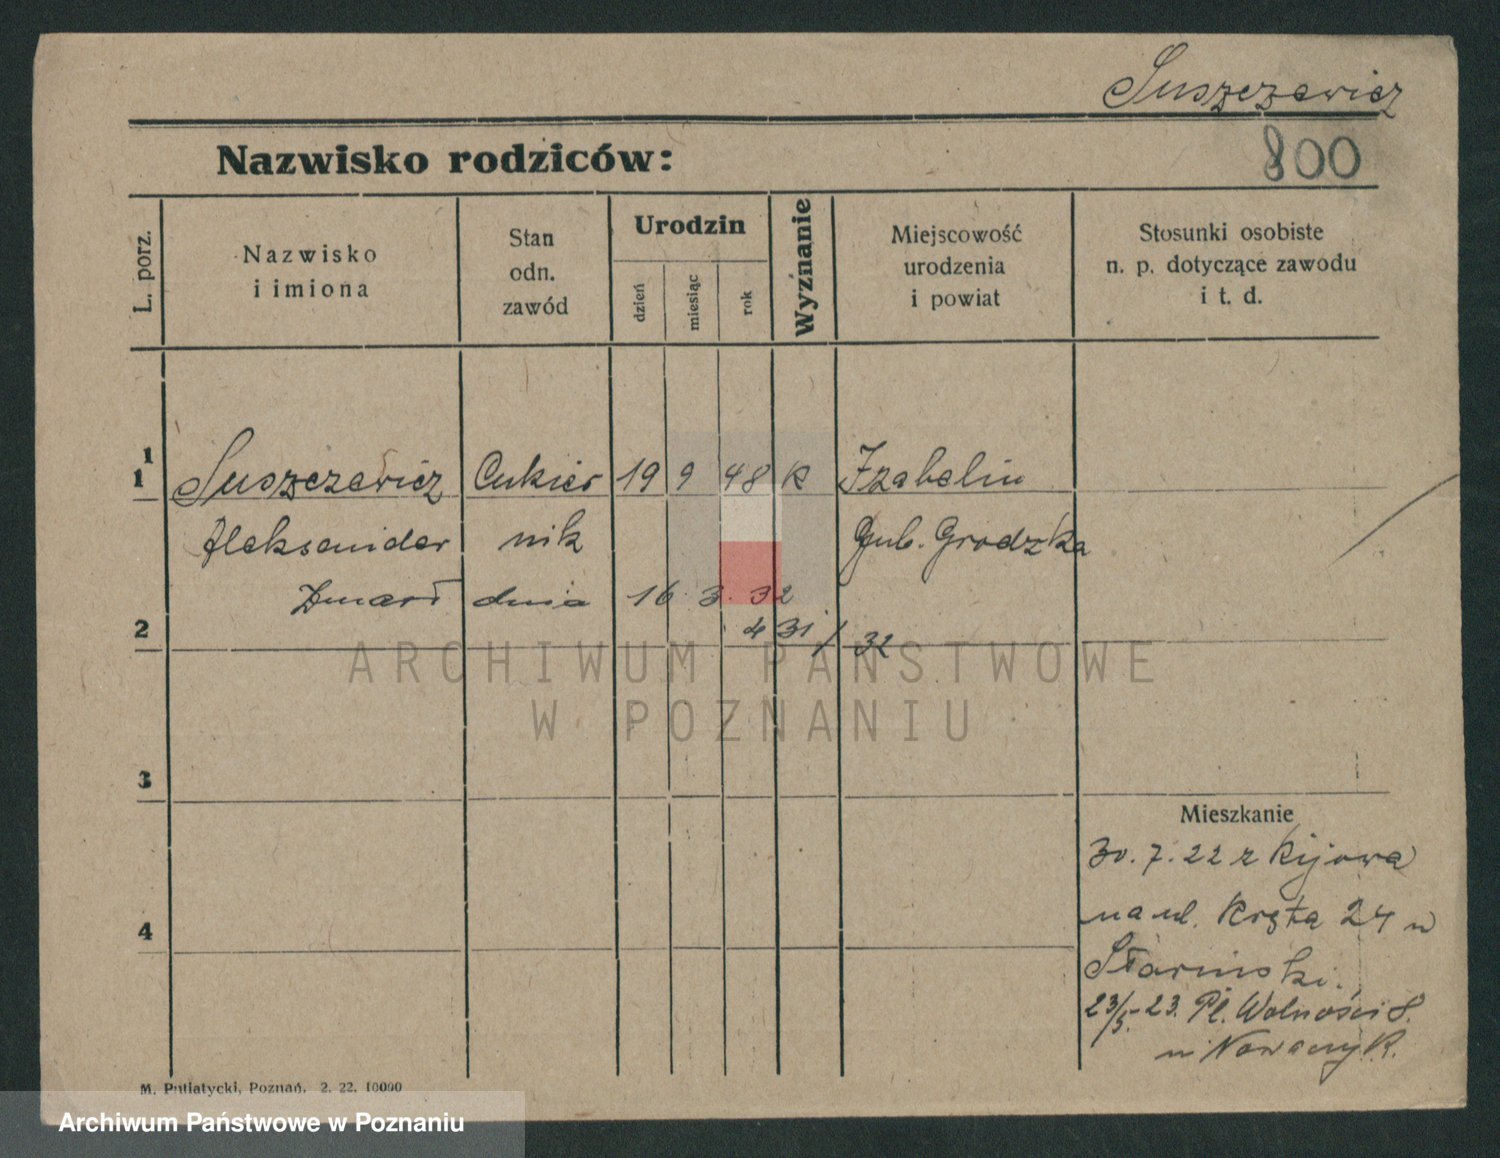 Suszczewicz
Nazwisko rodziców:
800
L. porz.
Nazwisko
i imiona
Stan
odn.
zawód
Urodzin
dzień
miesiąc
rok
Wyznanie
Miejscowość
urodzenia
i powiat
Stosunki osobiste
n. p. dotyczące zawodu
i t. d.
1
1 Suszczewicz Cukier 19 9 48 K Izabelin
Aleksander nik Gub. Grodzka
Zmarł dnia 16. 3. 32
2 431/32
ARCHIWUM PAŃSTWOWE
W POZNANIU
3
Mieszkanie
30. 7. 22 z Kijowa
na ul. Kręta 24 u
4
Słarinski.
23/5.-23. Pl. Wolności 8.
u Nowaczyk.
M. Putiatycki, Poznań. 2. 22. 10000
Archiwum Państwowe w Poznaniu